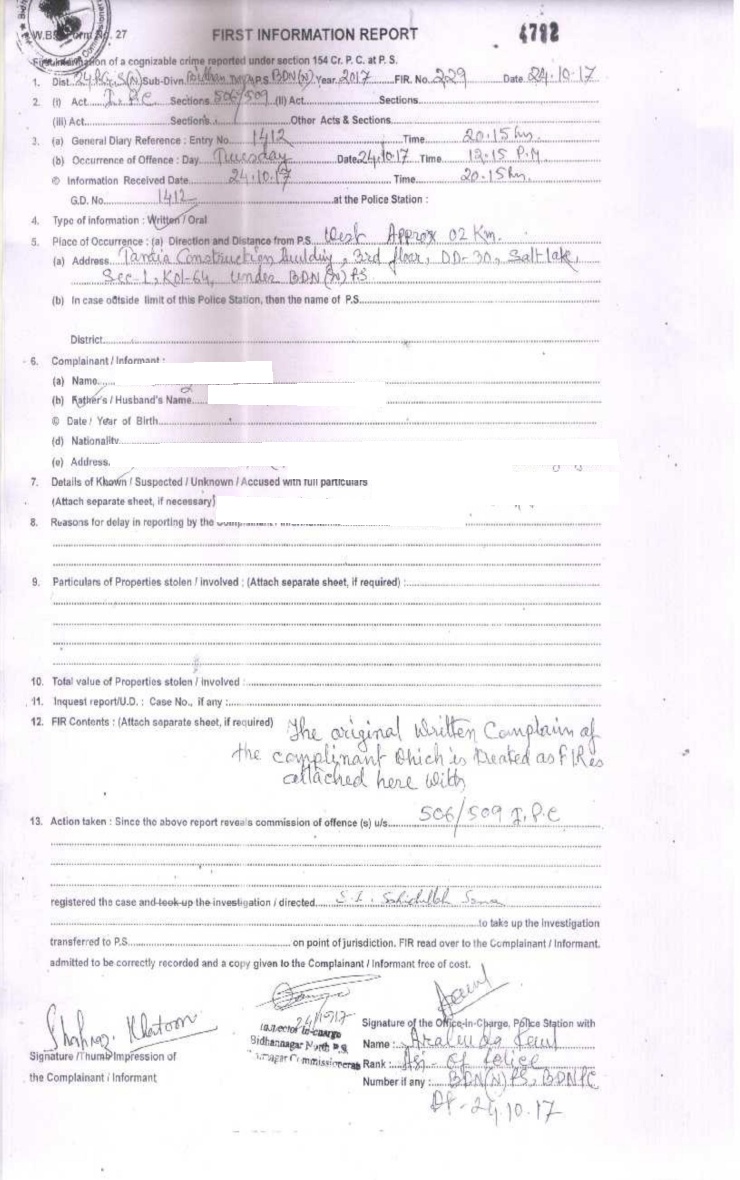 W.B. Form No. 27
FIRST INFORMATION REPORT
4792
First Information of a cognizable crime reported under section 154 Cr. P. C. at P. S.
1. Dist. 24 PGs(N) Sub-Divn. Bidhannagar P.S. BDN(N) Year 2017 FIR. No. 229 Date 24.10.17
2. (i) Act I.P.C Sections 506/509 (II) Act Sections
(iii) Act Sections Other Acts & Sections
3. (a) General Diary Reference : Entry No. 1412 Time 20.15 hrs.
(b) Occurrence of Offence : Day Thursday Date 24.10.17 Time 12.15 P.M
© Information Received Date 24.10.17 Time 20.15 hrs.
G.D. No. 1412 at the Police Station :
4. Type of information : Written / Oral
5. Place of Occurrence : (a) Direction and Distance from P.S. West Approx 02 Km.
(a) Address Tantia Construction building, 3rd floor, DD-30, Salt lake,
Sec-1, Kol-64, under BDN(N) P.S
(b) In case outside limit of this Police Station, then the name of P.S.
District
6. Complainant / Informant :
(a) Name
(b) Father's / Husband's Name
© Date / Year of Birth
(d) Nationality
(e) Address.
7. Details of Known / Suspected / Unknown / Accused with full particulars
(Attach separate sheet, if necessary)
8. Reasons for delay in reporting by the
9. Particulars of Properties stolen / involved : (Attach separate sheet, if required) :
10. Total value of Properties stolen / involved :
11. Inquest report/U.D. : Case No., if any :
12. FIR Contents : (Attach separate sheet, if required) The original Written Complain of
the complinant which is treated as FIR is
attached here with
13. Action taken : Since the above report reveals commission of offence (s) u/s. 506/509 I.P.C
registered the case and took up the investigation / directed S.I. Sahidullah
to take up the investigation
transferred to P.S. on point of jurisdiction. FIR read over to the Complainant / Informant.
admitted to be correctly recorded and a copy given to the Complainant / Informant free of cost.
Shahnaz Khatoon
Signature / Thumb Impression of
the Complainant / Informant
24/10/17
Inspector In-charge
Bidhannagar North P.S.
Signature of the Office-In-Charge, Police Station with
Name :
Rank : ASI of Police
Number if any : BDN(N) PS, BDNPC
Dt-24.10.17